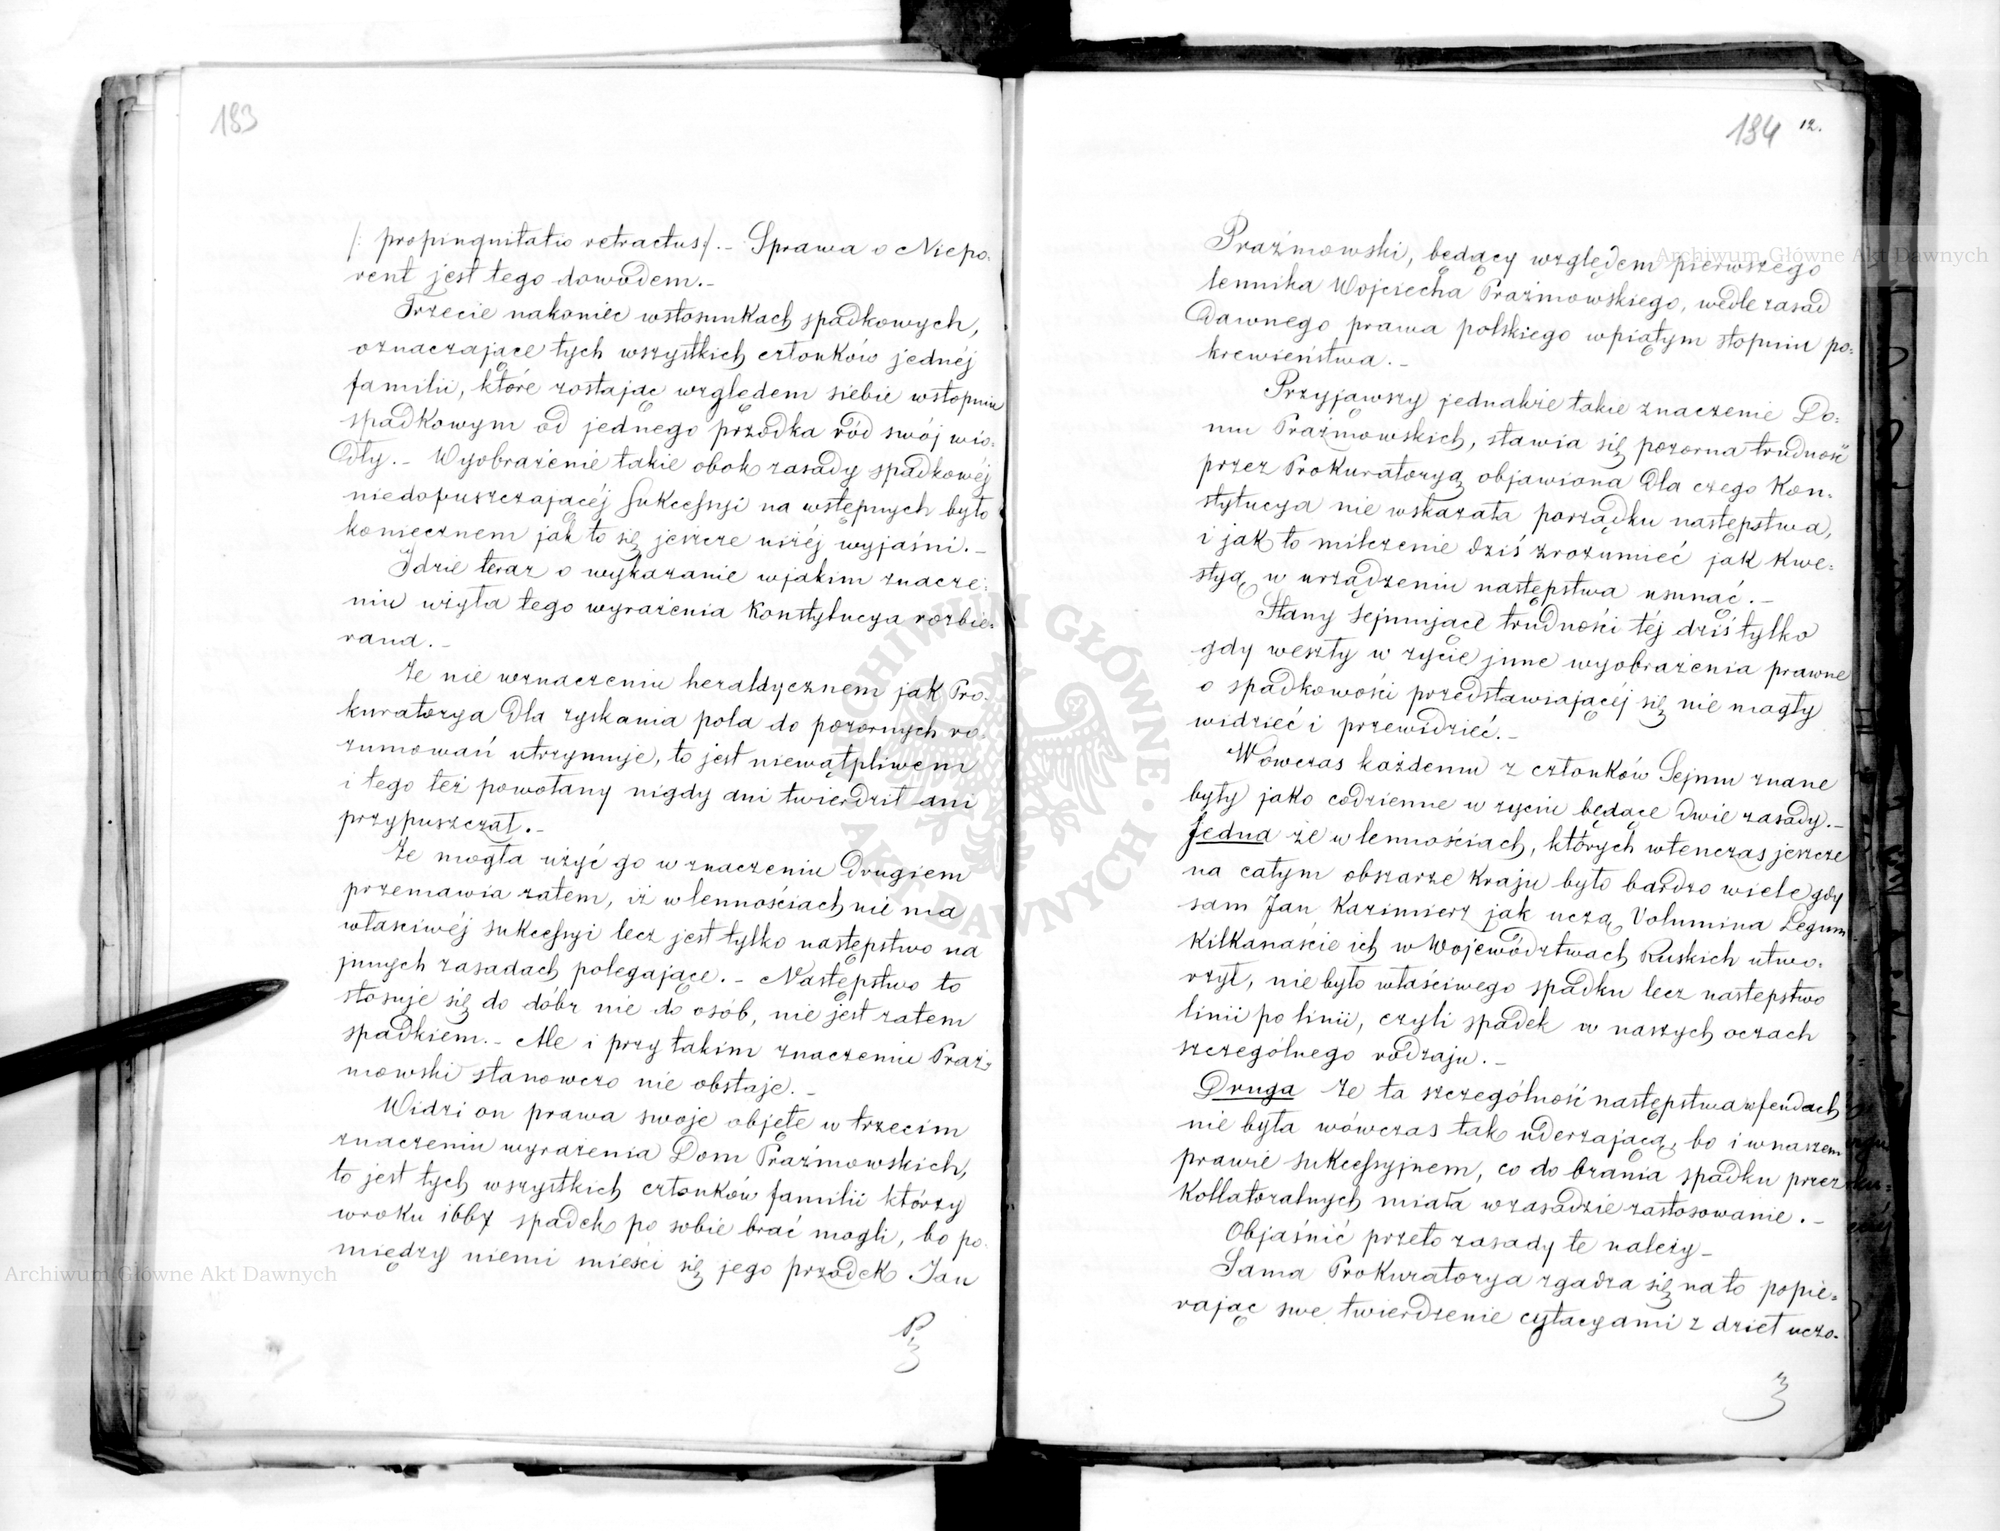 183
/: propinquitatio retractus :/. - Sprawa o Niepo-
rent jest tego dowodem. -
Trzecie nakoniec wstosunkach spadkowych,
oznaczające tych wszystkich członków jednéj
familii, któré zostając względem siebie wstopniu
spadkowym od jednego przodka ród swój wio-
dły. - Wyobrażenie takie obok zasady spadkowéj
niedopuszczającéj sukcessyi na wstępnych było
koniecznem jak to się jeszcze niżéj wyjaśni. -
Idzie teraz o wykazanie wjakim znacze-
niu użyła tego wyrażenia Konstytucya rozbie-
rana. -
Że nie wznaczeniu heraldycznem jak Pro-
kuratorya dla zyskania pola do pozornych ro-
zumowań utrzymuje, to jest niewątpliwem
i tego też powołany nigdy ani twierdził ani
przypuszczał. -
Że mogła użyć go w znaczeniu drugiem
przemawia zatem, iż w lennościach nie ma
właściwéj sukcessyi lecz jest tylko następstwo na
innych zasadach polegające. - Następstwo to
stosuje się do dóbr nie do osób, nie jest zatem
spadkiem. - Ale i przy takim znaczeniu Praż-
mowski stanowczo nie obstaje. -
Widzi on prawa swoje objęte w trzecim
znaczeniu wyrażenia Dom Prażmowskich,
to jest tych wszystkich członków familii którzy
wroku 1667 spadek po sobie brać mogli, bo po-
między niemi mieści się jego przodek Jan
184 12.
Prażmowski, będący względem pierwszego
lennika Wojciecha Prażmowskiego, wedle zasad
dawnego prawa polskiego wpiątym stopniu po-
krewieństwa. -
Przyjąwszy jednakże takie znaczenie Do-
mu Prażmowskich, stawia się pozorna trudność
przez Prokuratoryą objawiona dla czego Kon-
stytucya nie wskazała porządku następstwa,
i jak to milczenie dziś zrozumieć jak kwe-
styą w urządzeniu następstwa usunąć. -
Stany Sejmujące trudności téj dziś tylko
gdy weszły w życie inne wyobrażenia prawne
o spadkowości przedstawiającéj się nie mogły
widzieć i przewidzieć. -
Wówczas każdemu z członków Sejmu znane
były jako codzienne w życiu będące dwie zasady. -
Jedna że w lennościach, których wtenczas jeszcze
na całym obszarze Kraju było bardzo wiele gdy
sam Jan Kazimierz jak uczą Volumina Legum
Kilkanaście ich w Województwach Ruskich utwo-
rzył, nie było właściwego spadku lecz następstwo
linii po linii, czyli spadek w naszych oczach
szczególnego rodzaju. -
Druga że ta szczególność następstwa w feudach
nie była wówczas tak uderzającą, bo i wnaszem
prawie sukcessyjnem, co do brania spadku przez
Kollatoralnych miała wzasadzie zastosowanie. -
Objaśnić przeto zasady te należy -
Sama Prokuratorya zgadza się na to popie-
rając swe twierdzenie cytacyami z dzieł uczo-
Archiwum Główne Akt Dawnych
Archiwum Główne Akt Dawnych
ARCHIWUM GŁÓWNE · AKT DAWNYCH ·